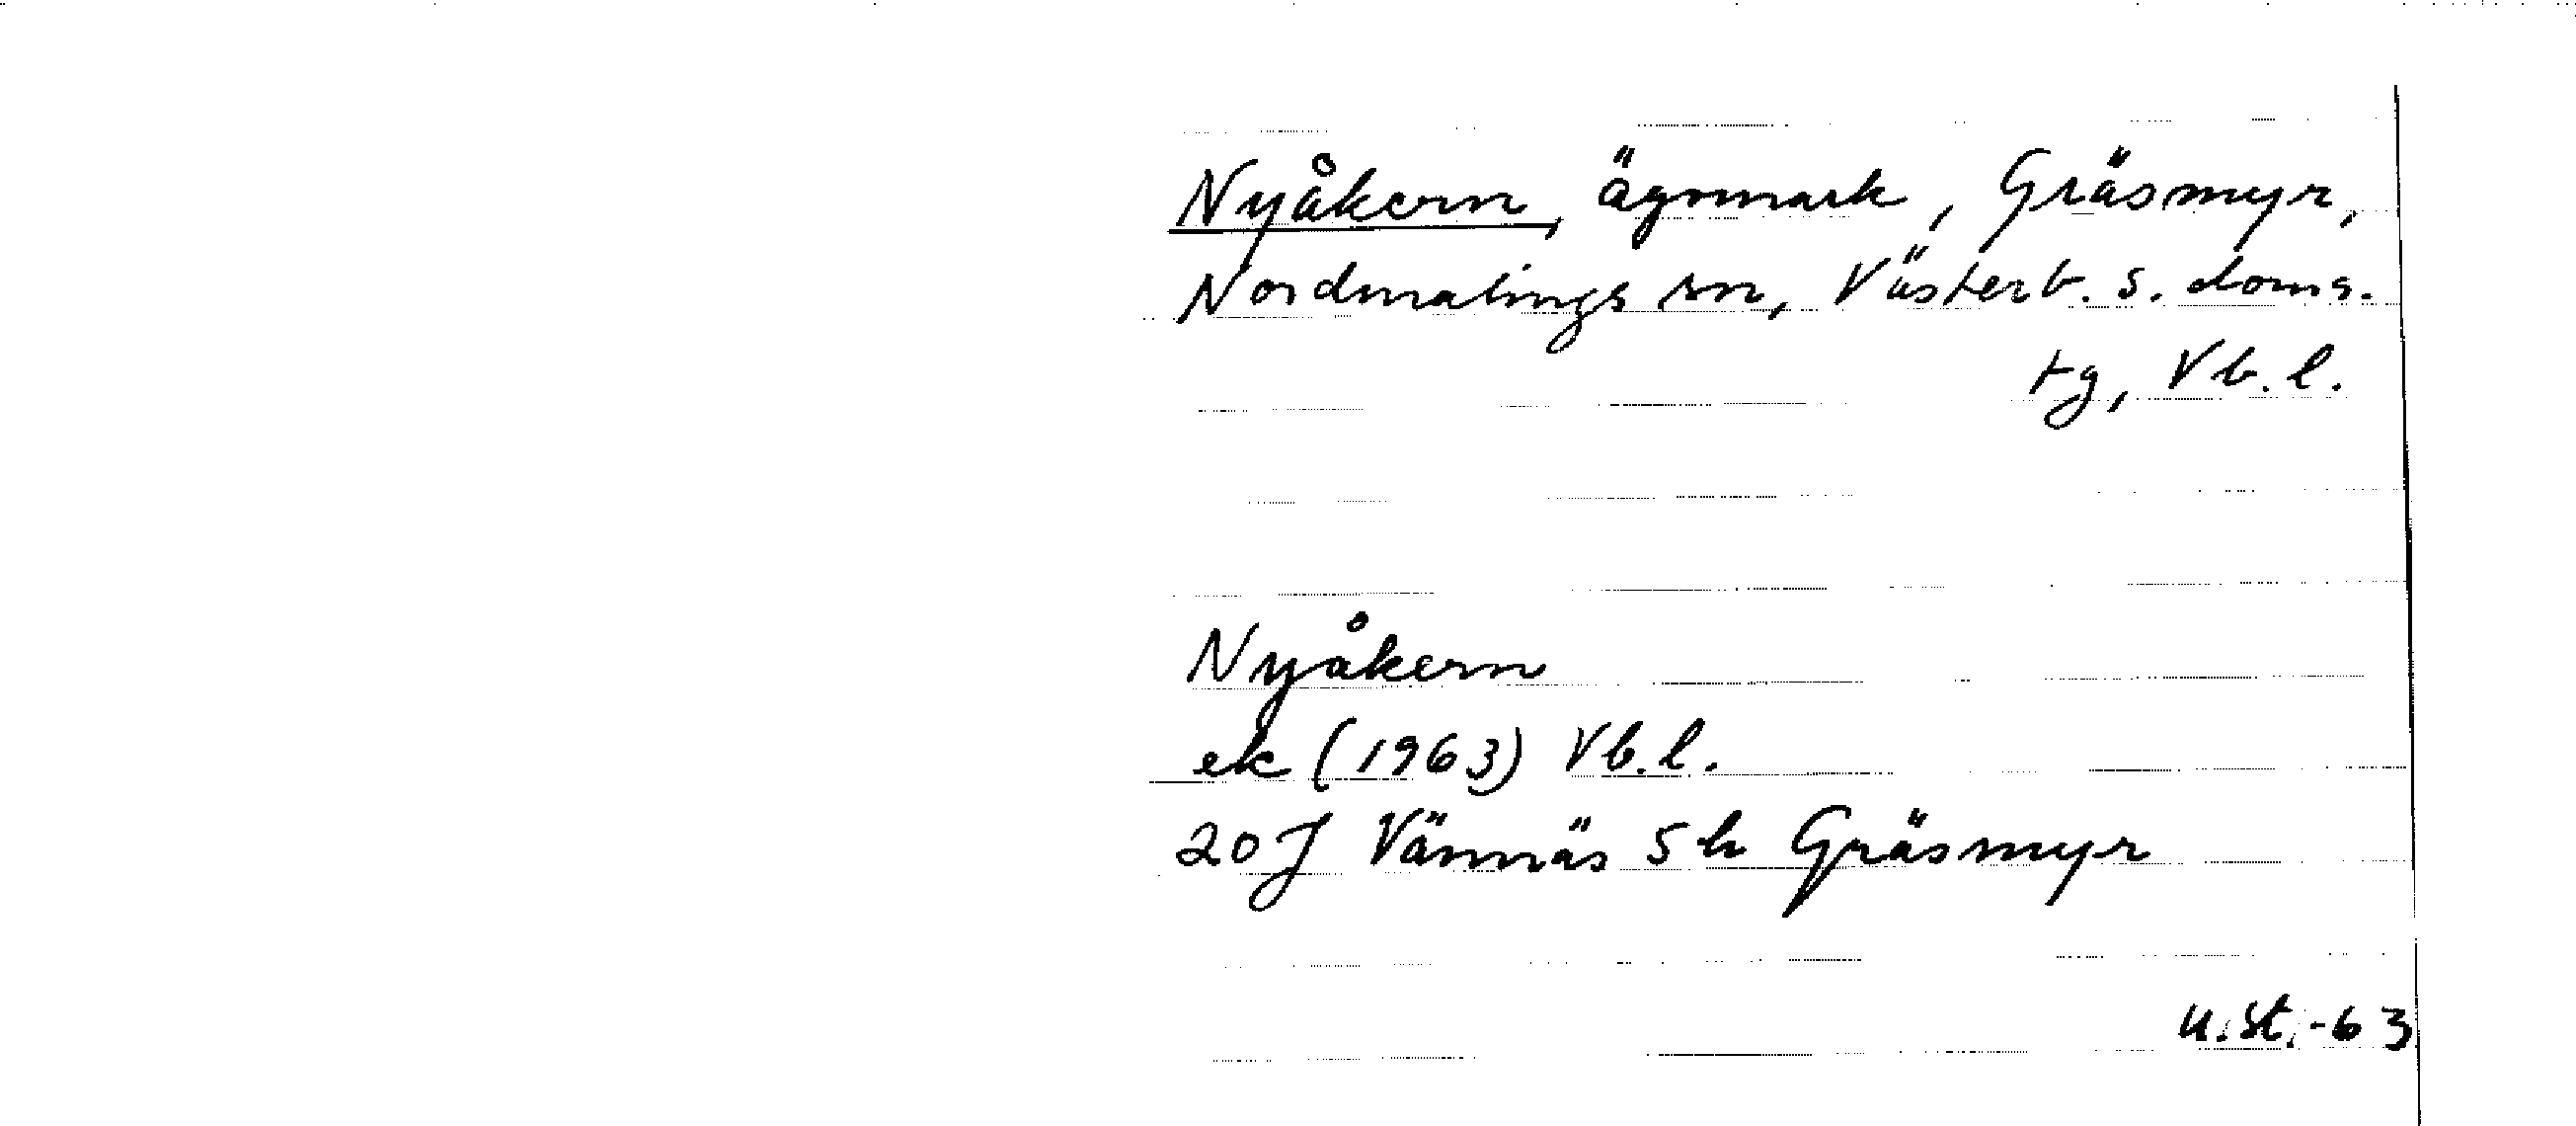 Nyåkern, ägomark, Gräsmyr,
Nordmalings sn, Västerb. s. doms.
tg, Vb. l.
Nyåkern
ek (1963) Vb. l.
20 J Vännäs 5 h Gräsmyr
U. St. -63